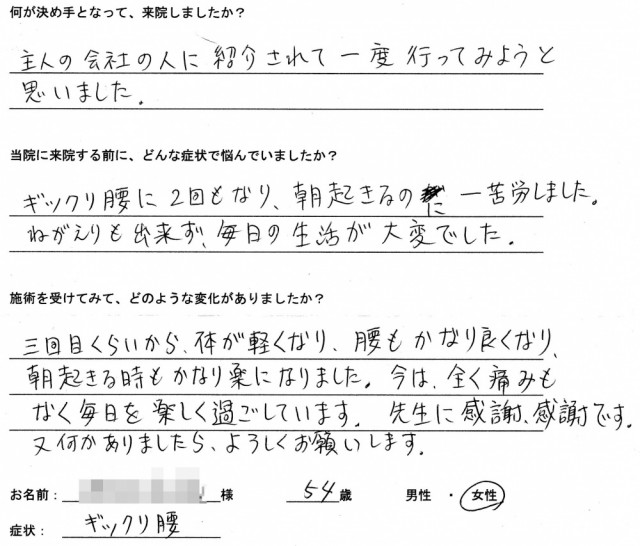 何が決め手となって、来院しましたか？
主人の会社の人に紹介されて一度行ってみようと
思いました。
当院に来院する前に、どんな症状で悩んでいましたか？
ギックリ腰に2回もなり、朝起きるのに一苦労しました。
ねがえりも出来ず、毎日の生活が大変でした。
施術を受けてみて、どのような変化がありましたか？
三回目くらいから、体が軽くなり、腰もかなり良くなり、
朝起きる時もかなり楽になりました。今は、全く痛みも
なく毎日を楽しく過ごしています。先生に感謝、感謝です。
又何かありましたら、よろしくお願いします。
お名前： 様 54歳 男性 ・ 女性
症状： ギックリ腰